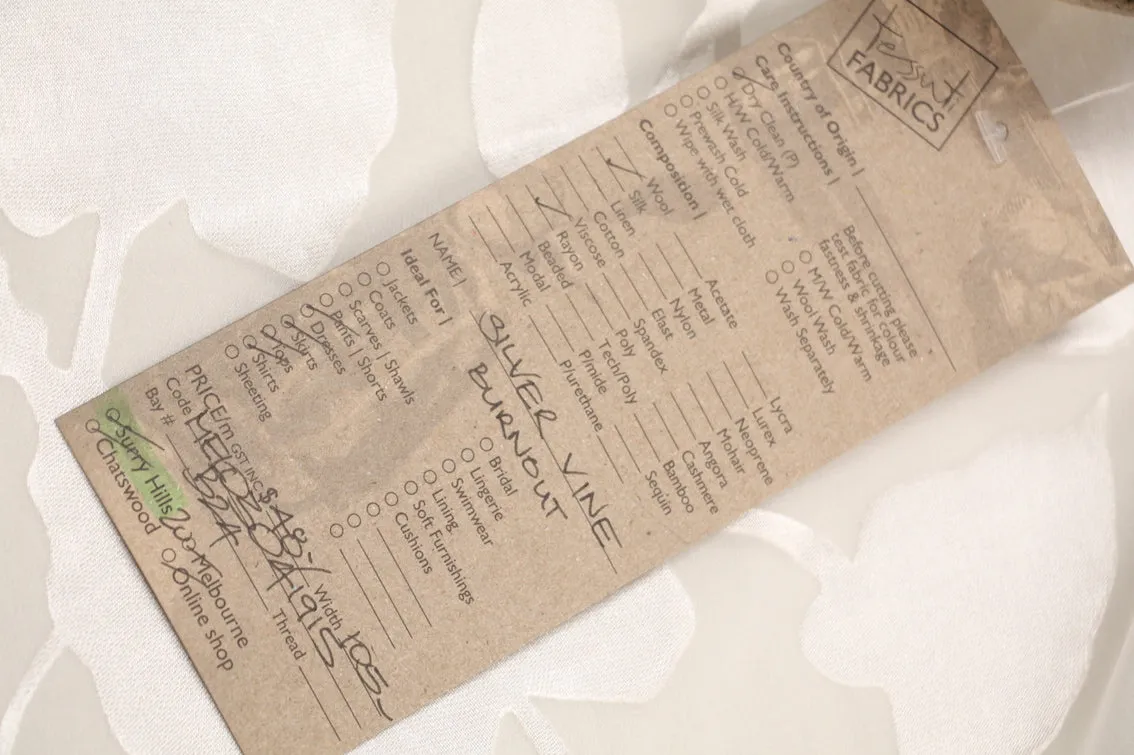 tessuti
FABRICS
Country of Origin |
Care Instructions |
Dry Clean (P)
H/W Cold/Warm
Silk Wash
Prewash Cold
Wipe with wet cloth
Before cutting please
test fabric for colour
fastness & shrinkage
M/W Cold/Warm
Wool Wash
Wash Separately
Composition |
Wool
Silk
Linen
Cotton
Viscose
Rayon
Beaded
Modal
Acrylic
Acetate
Metal
Nylon
Elast
Spandex
Poly
Tech/Poly
P/mide
P/urethane
Lycra
Lurex
Neoprene
Mohair
Angora
Cashmere
Bamboo
Sequin
NAME | SILVER VINE
BURNOUT
Ideal For |
Jackets
Coats
Scarves | Shawls
Pants | Shorts
Dresses
Skirts
Tops
Shirts
Sheeting
Bridal
Lingerie
Swimwear
Lining
Soft Furnishings
Cushions
PRICE/m GST INC $48-/ Width 105-
Code
Bay # 32A Thread
Surry Hills Melbourne
Chatswood Online shop